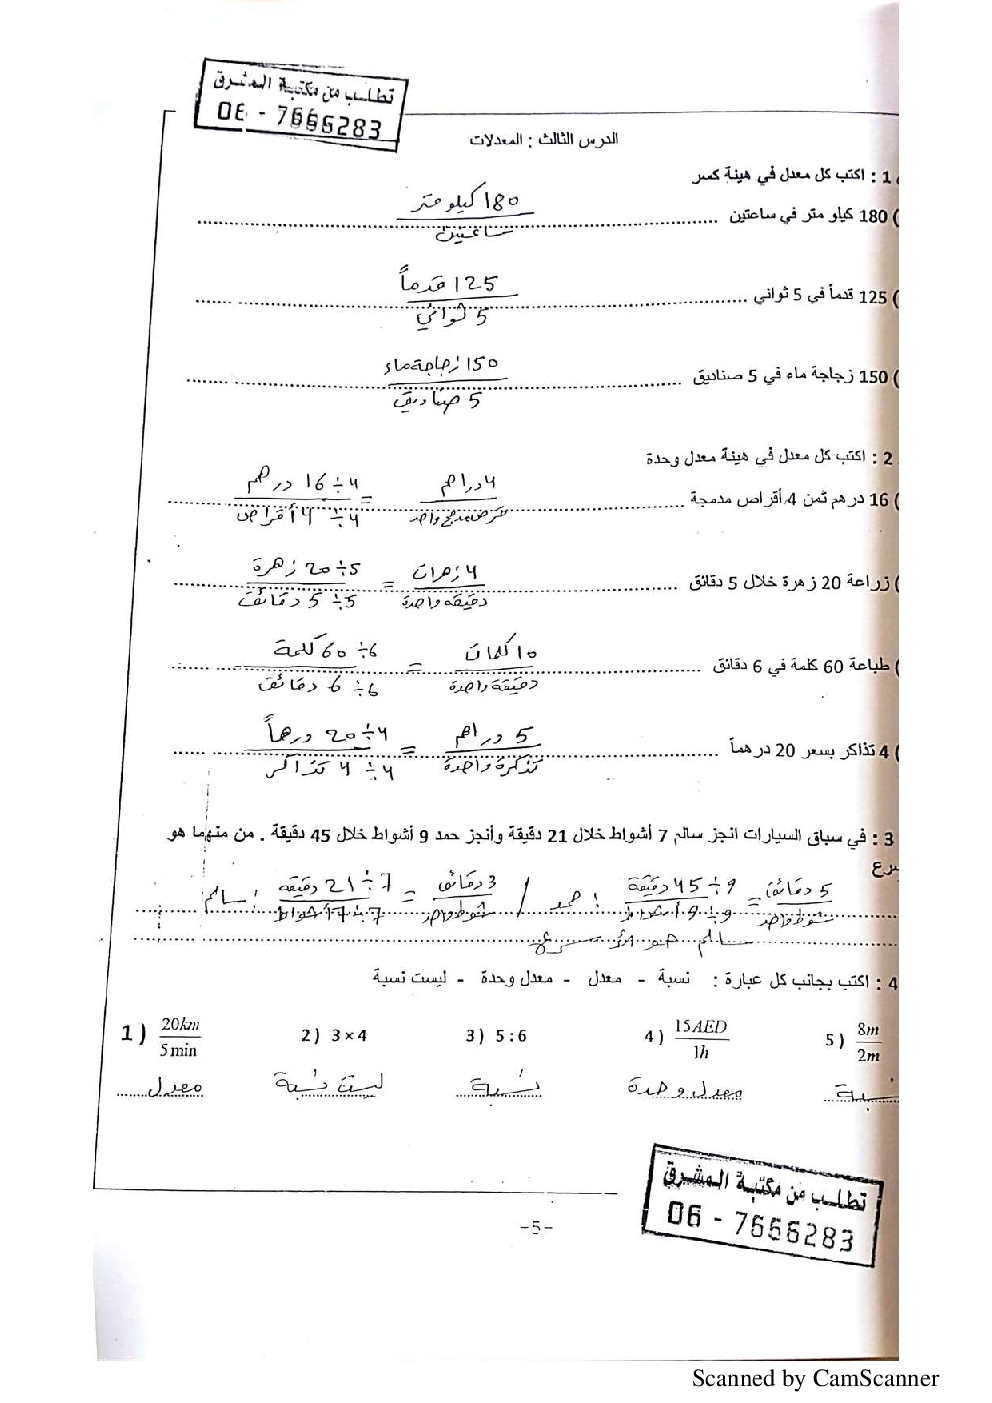 تطلب من مكتبة المشرق
06 - 7666283
الدرس الثالث : المعدلات
1 : اكتب كل معدل في هيئة كسر
) 180 كيلو متر في ساعتين
180 كيلو متر
ساعتين
) 125 قدماً في 5 ثواني
125 قدماً
5 ثواني
) 150 زجاجة ماء في 5 صناديق
150 زجاجة ماء
5 صناديق
2 : اكتب كل معدل في هيئة معدل وحدة
) 16 درهم ثمن 4 أقراص مدمجة
16÷4 درهم = 4 دراهم
4÷4 أقراص قرص مدمج واحد
) زراعة 20 زهرة خلال 5 دقائق
20÷5 زهرة = 4 زهرات
5÷5 دقائق دقيقة واحدة
) طباعة 60 كلمة في 6 دقائق
60÷6 كلمة = 10 كلمات
6÷6 دقائق دقيقة واحدة
) 4 تذاكر بسعر 20 درهماً
20÷4 درهماً = 5 دراهم
4÷4 تذاكر تذكرة واحدة
3 : في سباق السيارات انجز سالم 7 أشواط خلال 21 دقيقة وأنجز حمد 9 أشواط خلال 45 دقيقة . من منهما هو
سرع
سالم : 21÷7 دقيقة = 3 دقائق / حمد : 45÷9 دقيقة = 5 دقائق
7÷7 أشواط شوط واحد 9÷9 أشواط شوط واحد
سالم هو الأسرع
4 : اكتب بجانب كل عبارة : نسبة - معدل - معدل وحدة - ليست نسبة
1) 20km 2) 3×4 3) 5:6 4) 15AED 5) 8m
5min 1h 2m
معدل ليست نسبة نسبة معدل وحدة نسبة
تطلب من مكتبة المشرق
06 - 7666283
-5-
Scanned by CamScanner